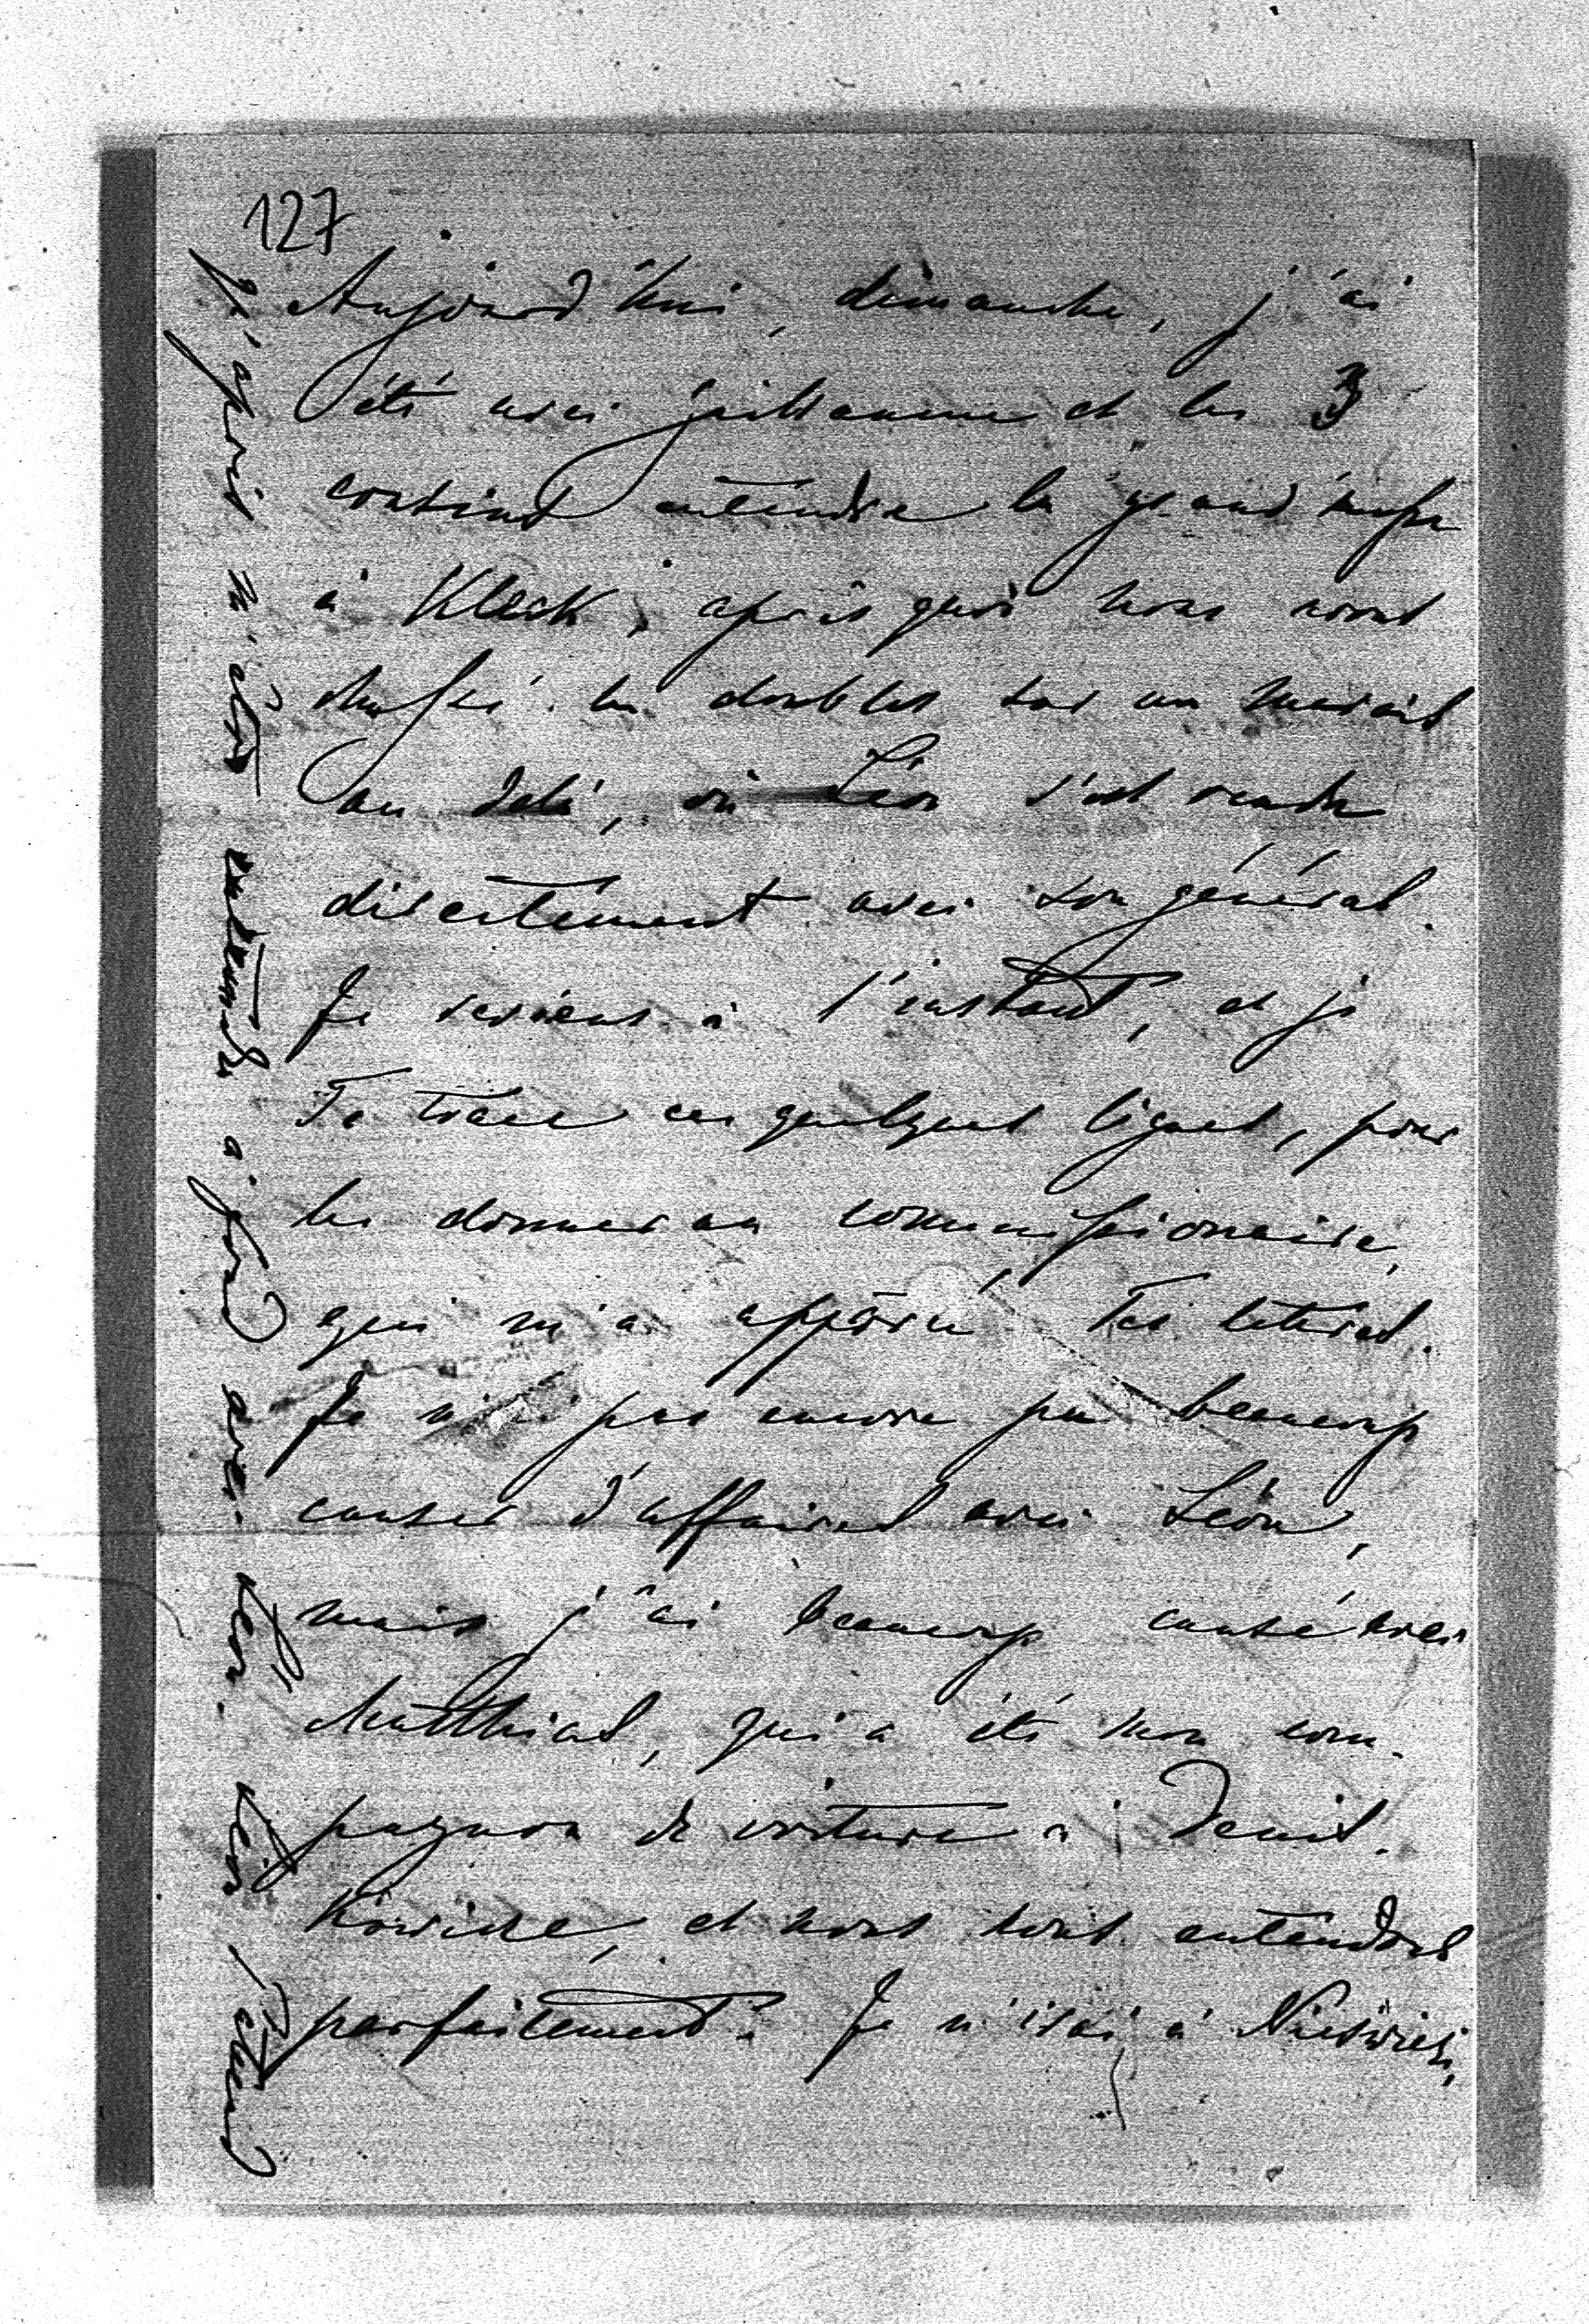 127
Aujourd'hui, dimanche, j'ai
été avec Guillaume et les 3
cousins entendre la grand'messe
à Kleck, après quoi nous avons
chassé les doubles sur un marais
au delà, où Léon s'est rendu
directement avec son général.
Je reviens à l'instant, et je
Te trace ces quelques lignes, pour
les donner au commissionaire,
qui m'a apporté Tes lettres.
Je n'ai pas encore pu beaucoup
causer d'affaires avec Léon,
mais j'ai beaucoup causé avec
Matthias, qui a été mon com-
pagnon de voiture à Denis-
kowicze, et nous nous entendons
parfaitement. Je n'irai à Nieświeź,
à fond avec